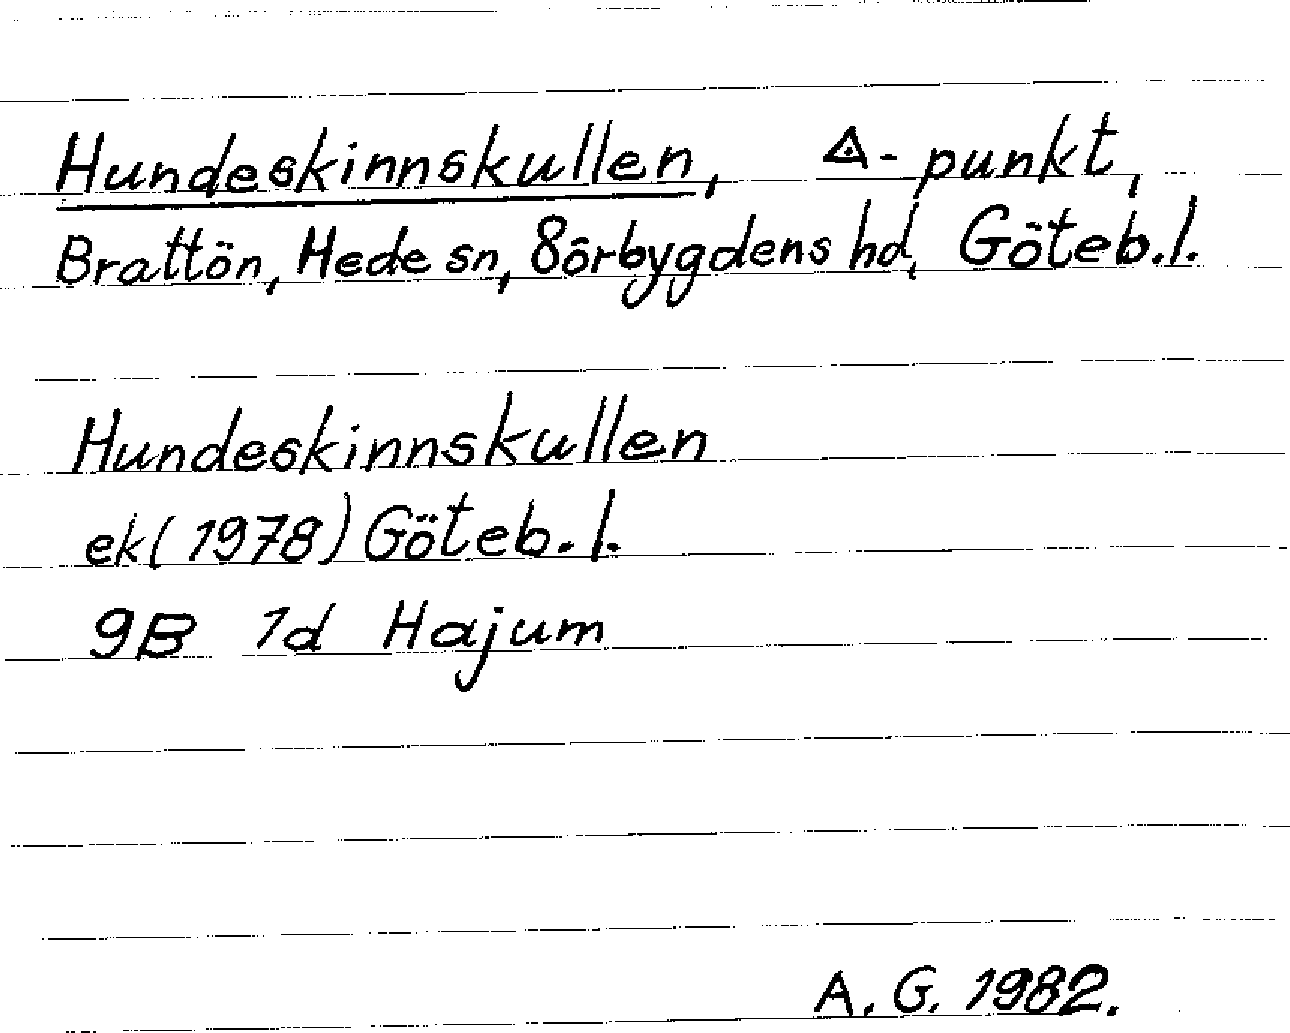 Hundeskinnskullen, △-punkt,
Brattön, Hede sn, Sörbygdens hd, Göteb.l.
Hundeskinnskullen
ek(1978) Göteb.l.
9B 1d Hajum
A.G. 1982.